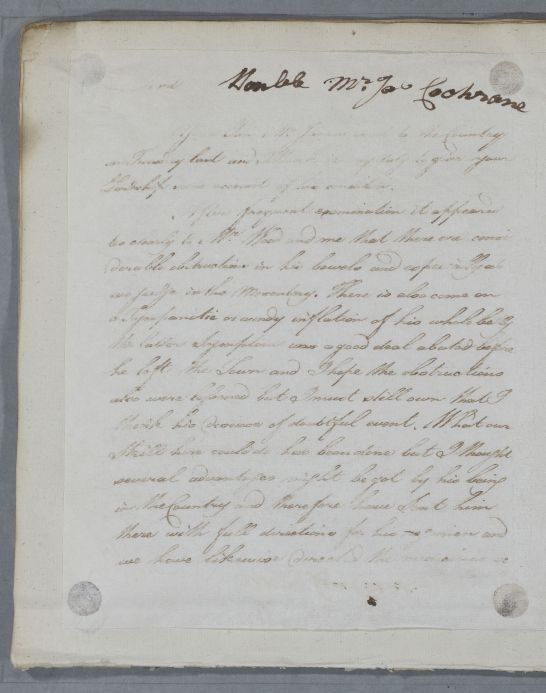 Honble Mr. Jas Cochrane
Your Son Mr. James went to the Country
on Tuesday last and I think it my duty to give your
Lordship some account of his
After frequent examination it appeared
to clearly to Mr. Wood and me that there are consi
derable obstructions in his bowels and especially as
we judge in the Mesentery. There is also come on
a Tympanitic or windy inflation of his whole belly
the latter Symptom was a good deal abated before
he left the Town and I hope the obstructions
also were but I must still own that I
think his Disease of doubtful event. What our
Skill here could do has been done but I thought
several advantages might be got by his being
in the Country and therefore have sent him
there with full directions for his regimen and
we have likewise directed the medicines